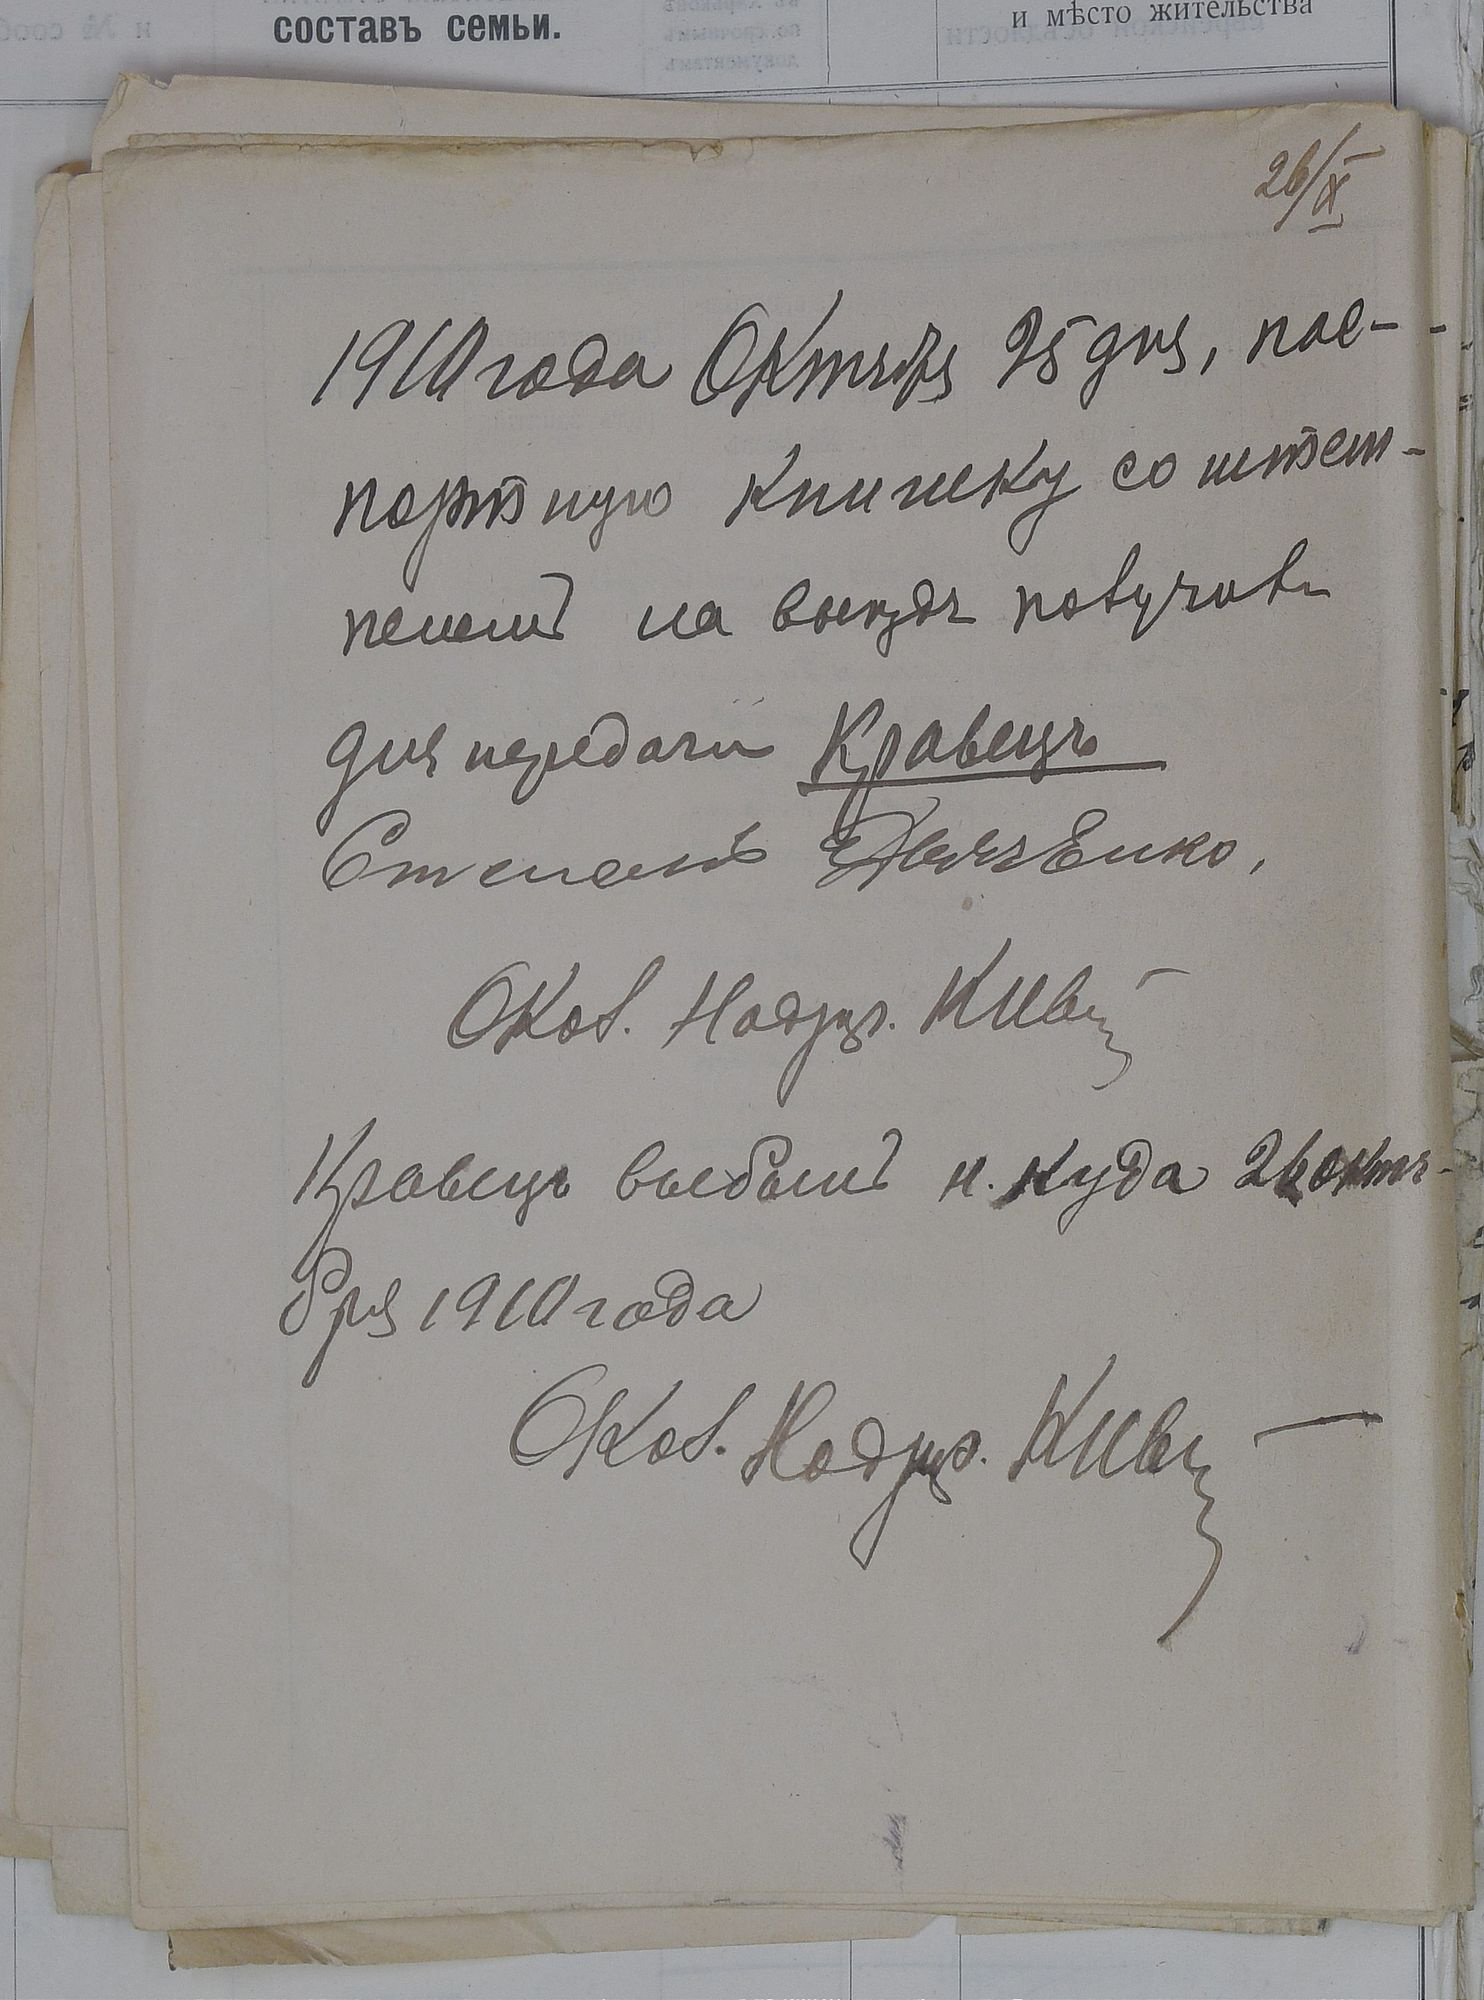 составъ семьи.
и мѣсто жительства
26/X
1910 года Октября 25 дня, пас-
портную книжку со штем-
пелемъ на выездъ получивъ
для передачи Кравецъ
Степанъ
Окол. Надзир.
Кравецъ выбылъ н. куда 26 октя-
бря 1910 года
Окол. Надзир.